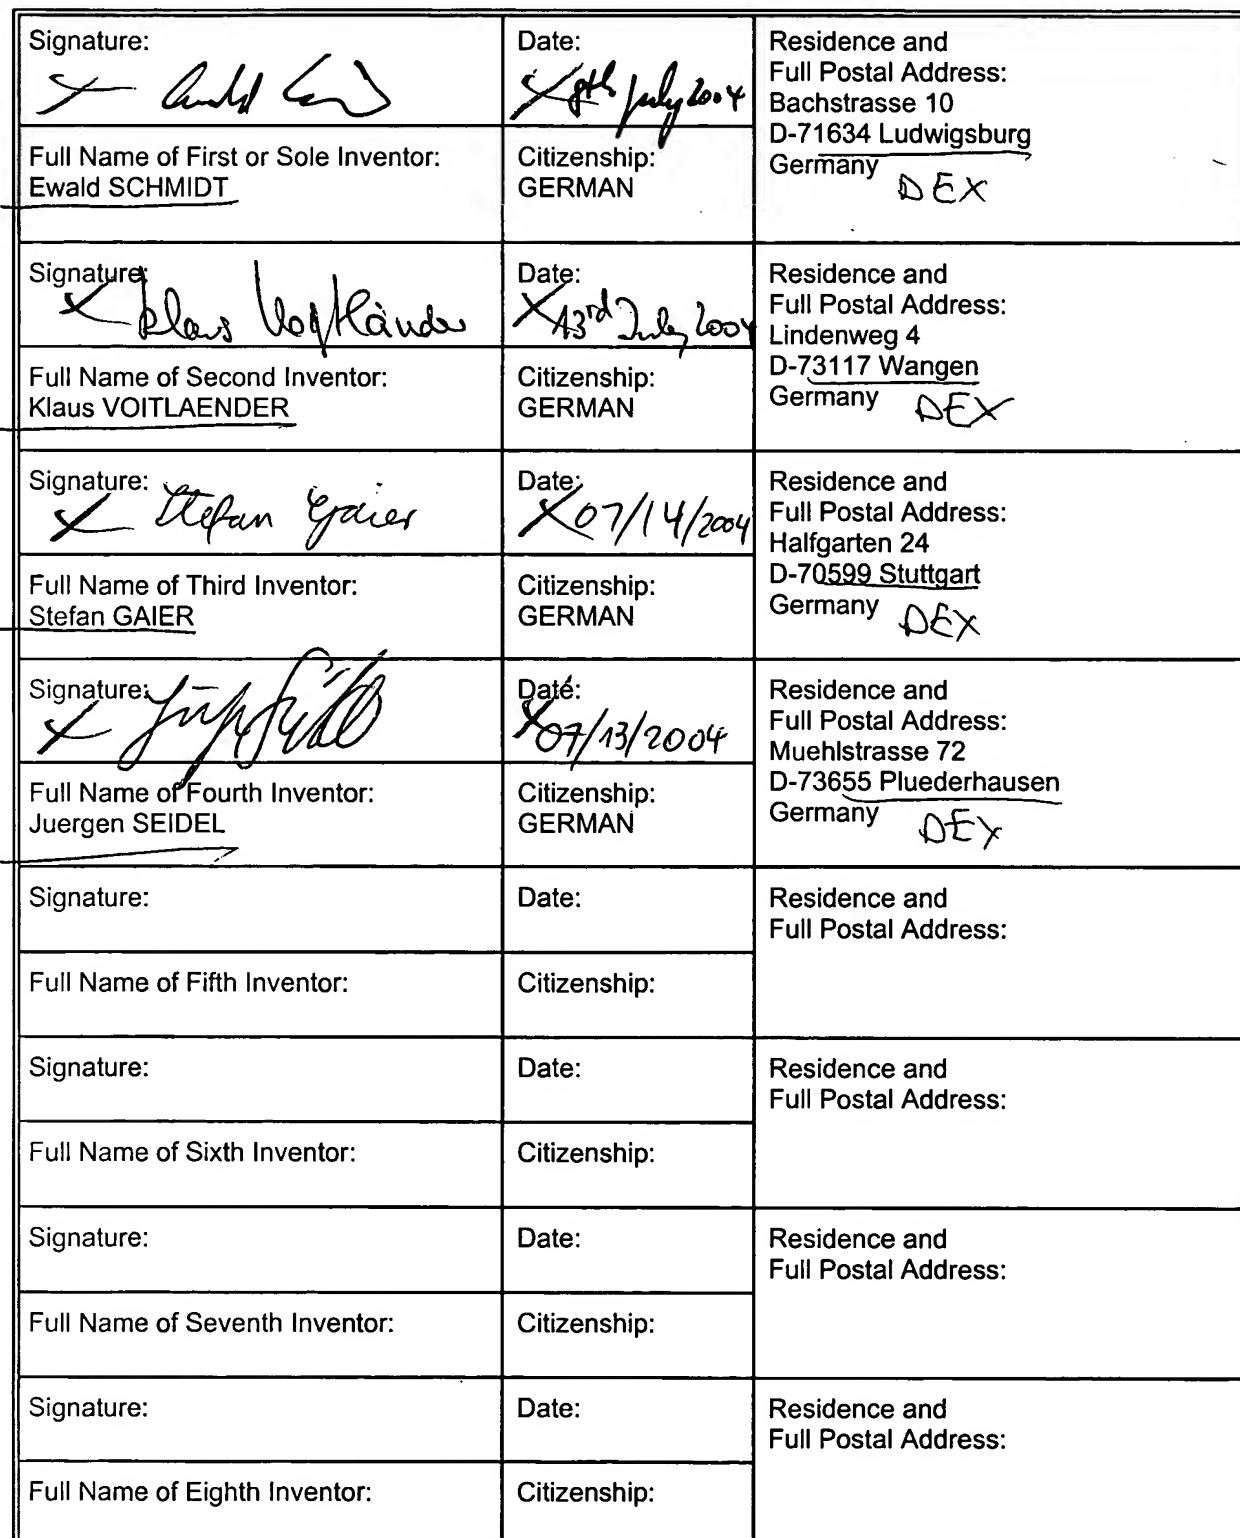 Signature:
Ewald
Date:
8th July 2004
Residence and
Full Postal Address:
Bachstrasse 10
D-71634 Ludwigsburg
Germany
DEX
Full Name of First or Sole Inventor:
Ewald SCHMIDT
Citizenship:
GERMAN
Signature:
Klaus Voigtländer
Date:
13rd July 2004
Residence and
Full Postal Address:
Lindenweg 4
D-73117 Wangen
Germany
DEX
Full Name of Second Inventor:
Klaus VOITLAENDER
Citizenship:
GERMAN
Signature:
Stefan Gaier
Date:
07/14/2004
Residence and
Full Postal Address:
Halfgarten 24
D-70599 Stuttgart
Germany
DEX
Full Name of Third Inventor:
Stefan GAIER
Citizenship:
GERMAN
Signature:
Date:
07/13/2004
Residence and
Full Postal Address:
Muehlstrasse 72
D-73655 Pluederhausen
Germany
DEX
Full Name of Fourth Inventor:
Juergen SEIDEL
Citizenship:
GERMAN
Signature:
Date:
Residence and
Full Postal Address:
Full Name of Fifth Inventor:
Citizenship:
Signature:
Date:
Residence and
Full Postal Address:
Full Name of Sixth Inventor:
Citizenship:
Signature:
Date:
Residence and
Full Postal Address:
Full Name of Seventh Inventor:
Citizenship:
Signature:
Date:
Residence and
Full Postal Address:
Full Name of Eighth Inventor:
Citizenship: